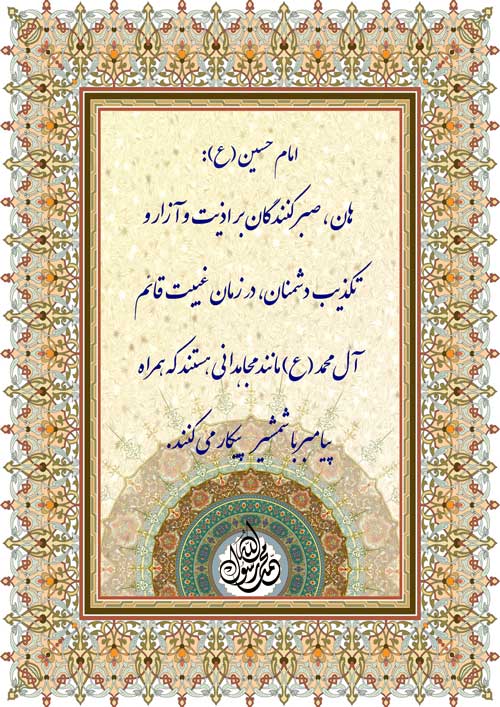 امام حسین (ع):
هان، صبر کنندگان بر اذیت و آزار و
تکذیب دشمنان، در زمان غیبت قائم
آل محمد (ع) مانند مجاهدانی هستند که همراه
پیامبر با شمشیر پیکار می کنند.
محمد رسول الله